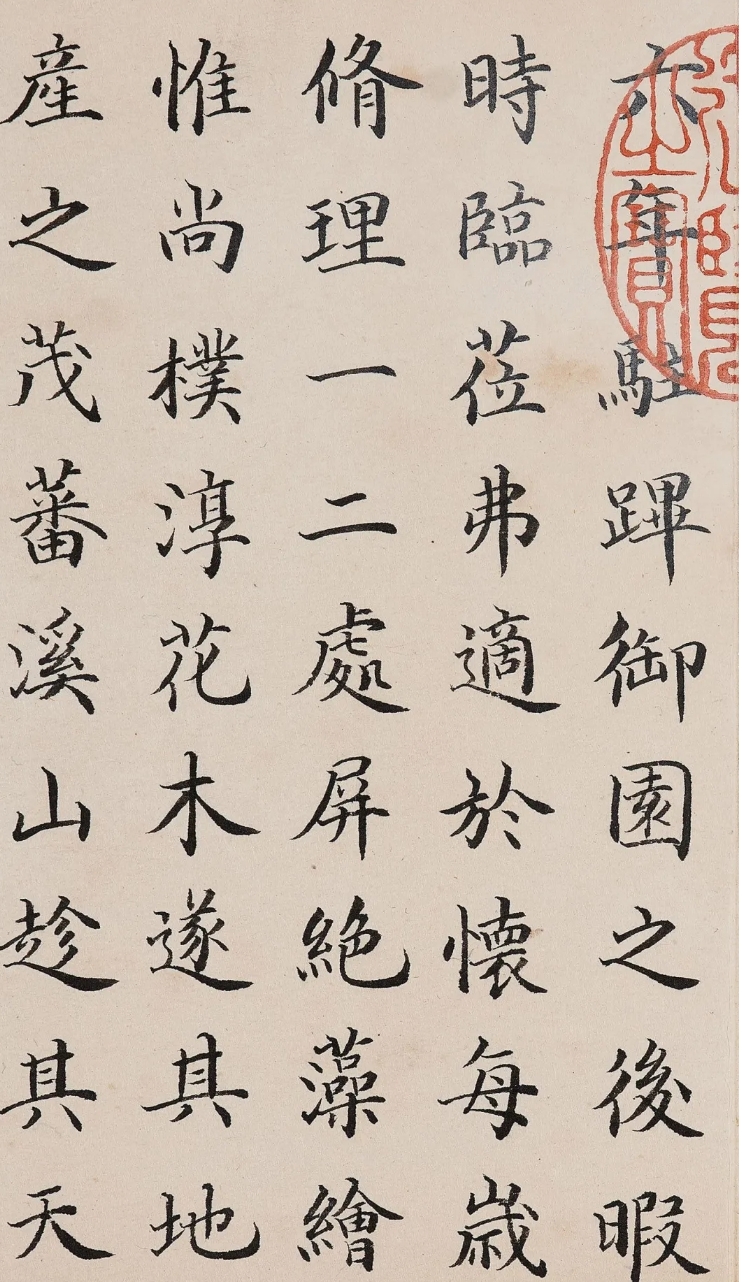 六年駐蹕御園之後暇
時臨莅弗適於懷每歲
脩理一二處屏絕藻繪
惟尚樸淳花木遂其地
産之茂蕃溪山趁其天
之寶